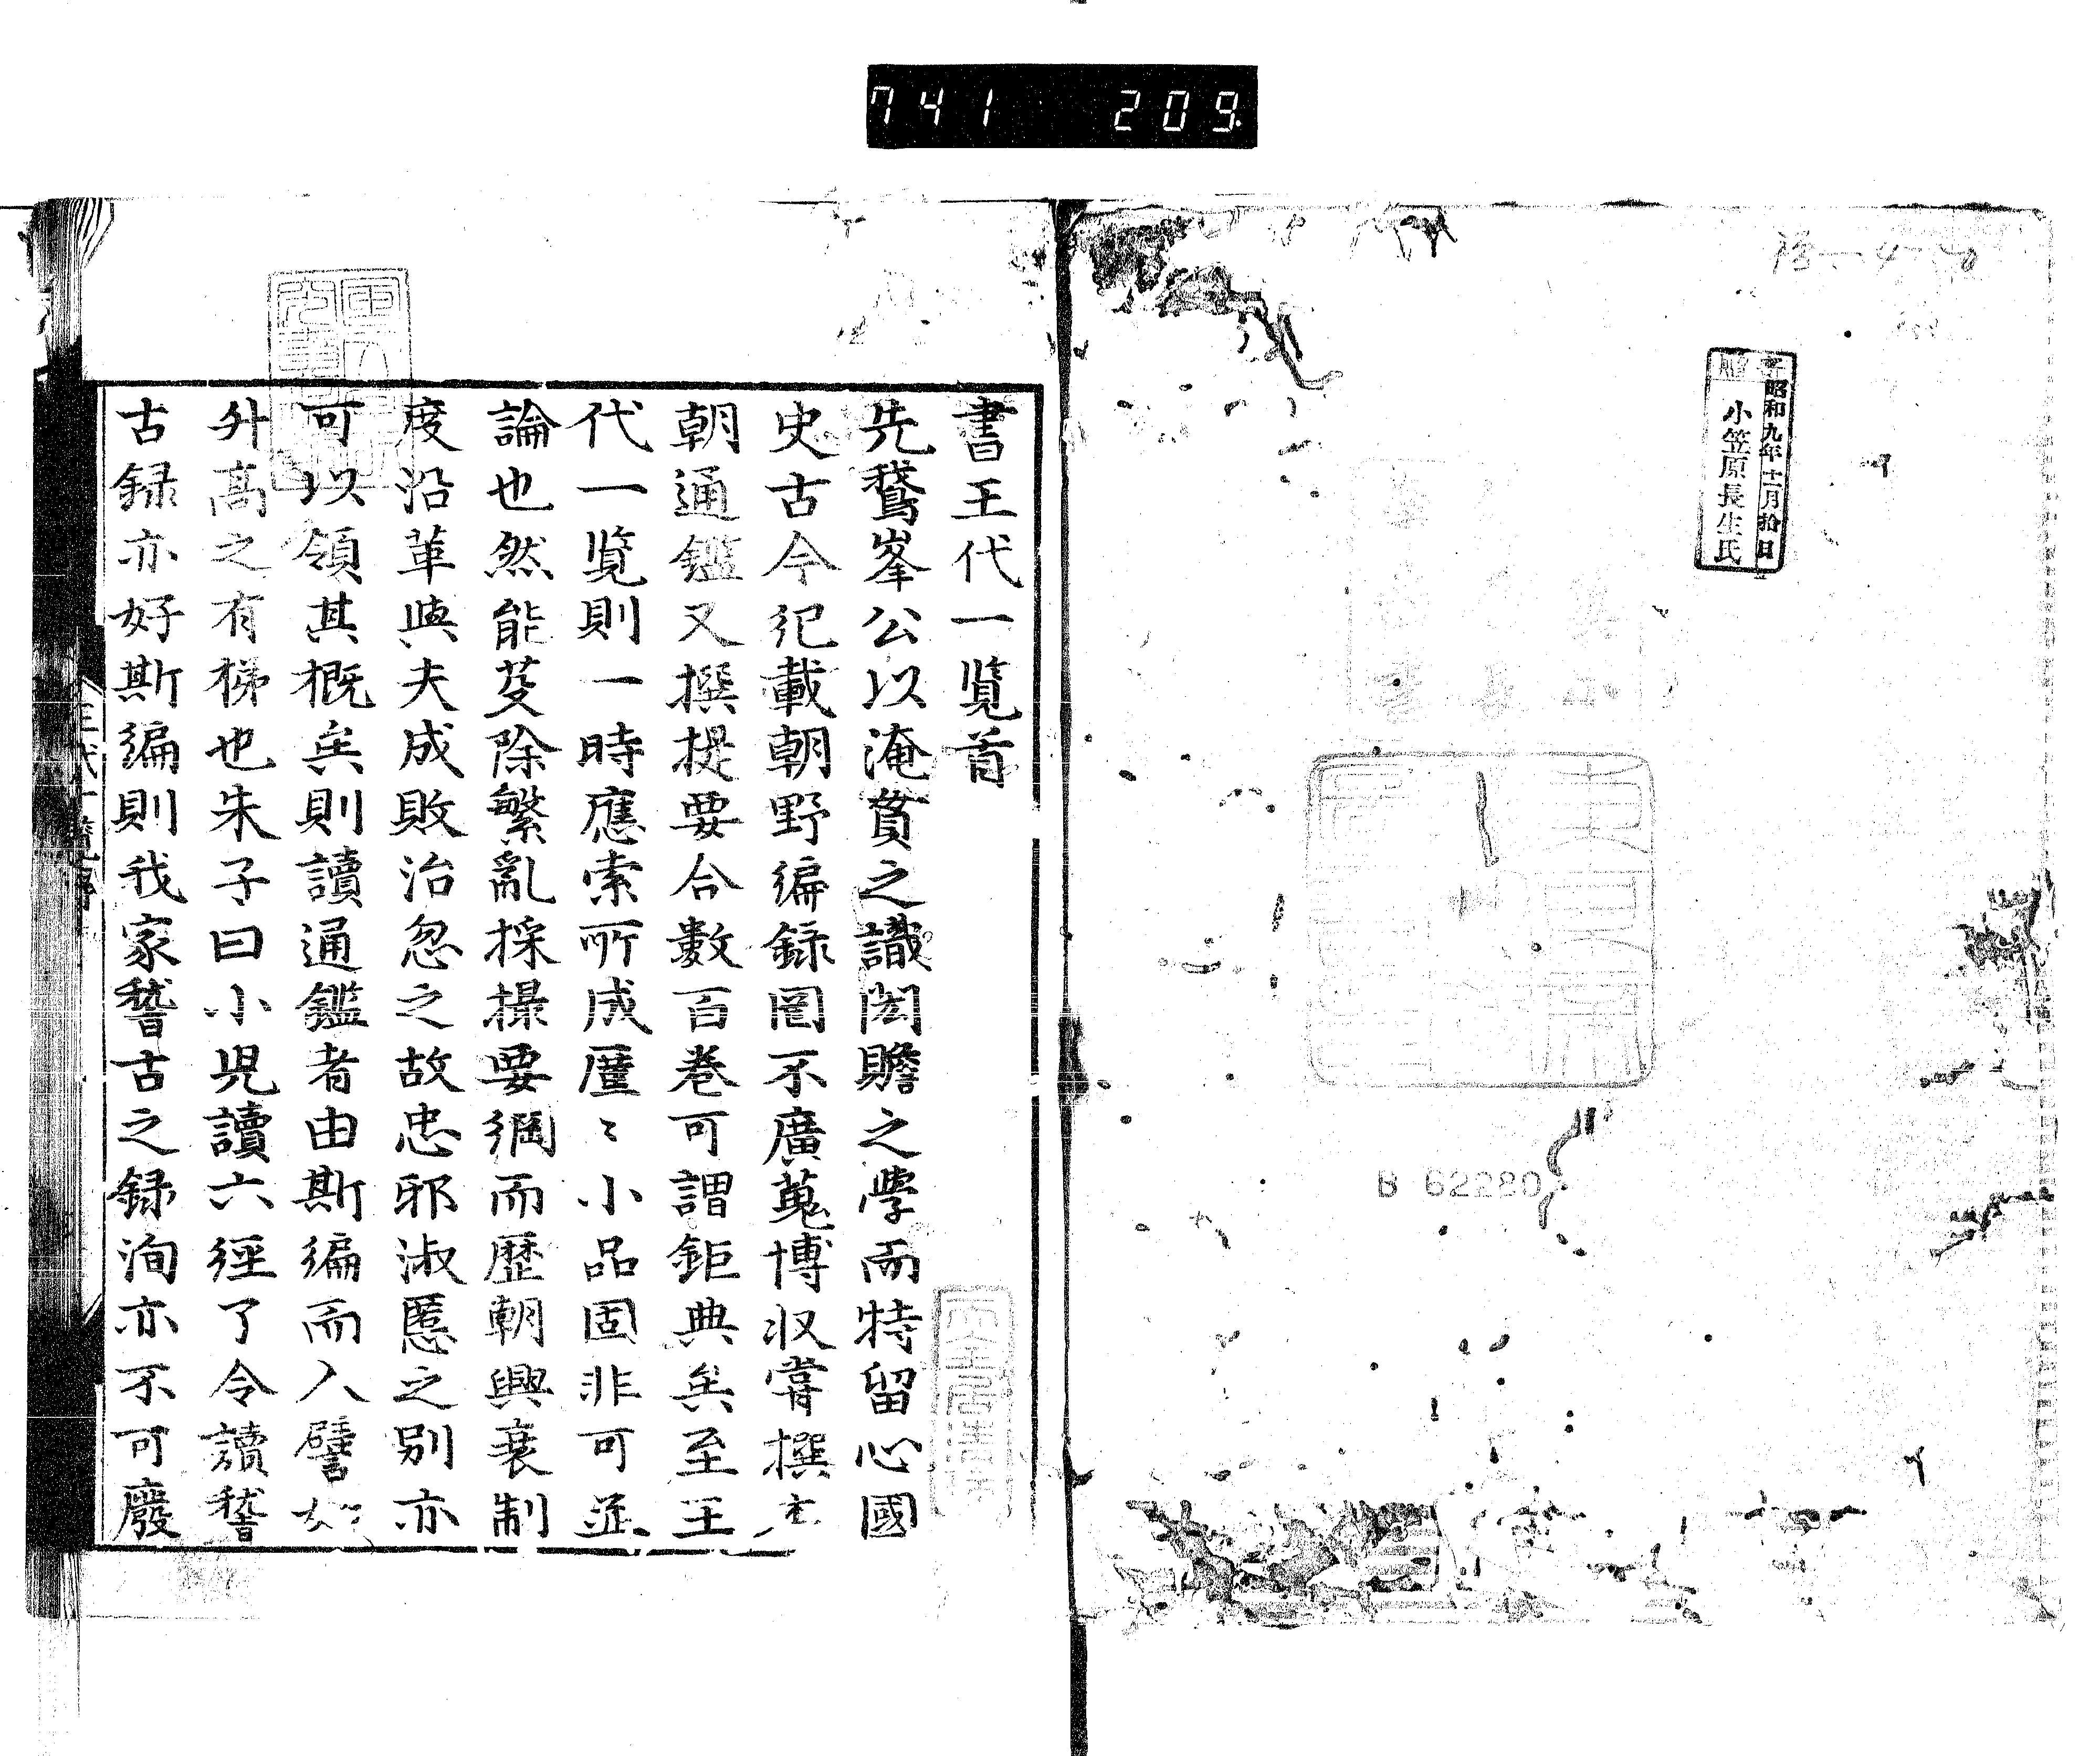 741 209
昭和九年十一月拾日
小笠原長生氏
B 62280
書王代一覧首
先鵞峯公以淹貫之識閎贍之學而特留心國
史古今紀載朝野編録罔不廣蒐博収甞撰本
朝通鑑又撰提要合數百巻可謂鉅典矣至王
代一覧則一時應索所成廑〻小品固非可並
論也然能芟除繁亂採撮要綱而歴朝興衰制
度沿革與夫成敗治忽之故忠邪淑慝之別亦
可以領其概矣則讀通鑑者由斯編而入譬如
升髙之有梯也朱子曰小児讀六經了令讀稽
古録亦好斯編則我家稽古之録洵亦不可廢